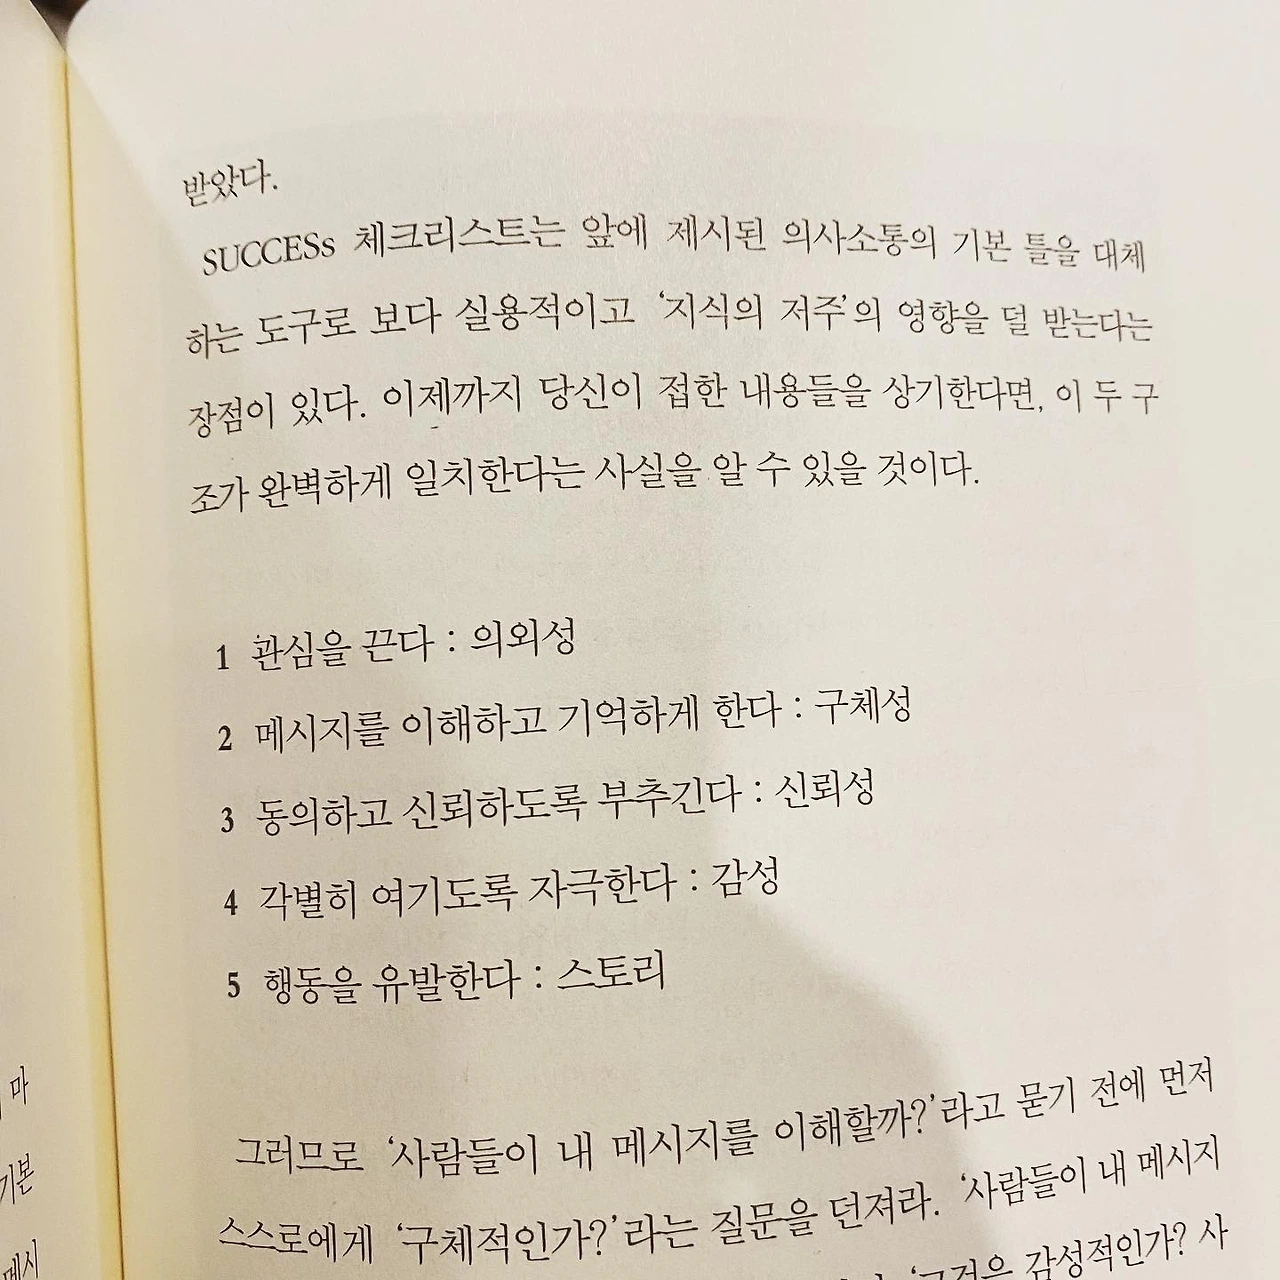 받았다.
SUCCESs 체크리스트는 앞에 제시된 의사소통의 기본 틀을 대체
하는 도구로 보다 실용적이고 ‘지식의 저주’의 영향을 덜 받는다는
장점이 있다. 이제까지 당신이 접한 내용들을 상기한다면, 이 두 구
조가 완벽하게 일치한다는 사실을 알 수 있을 것이다.
1 관심을 끈다 : 의외성
2 메시지를 이해하고 기억하게 한다 : 구체성
3 동의하고 신뢰하도록 부추긴다 : 신뢰성
4 각별히 여기도록 자극한다 : 감성
5 행동을 유발한다 : 스토리
그러므로 ‘사람들이 내 메시지를 이해할까?’라고 묻기 전에 먼저
스스로에게 ‘구체적인가?’라는 질문을 던져라. ‘사람들이 내 메시지
‘그것은 감성적인가? 사
마
기본
메시